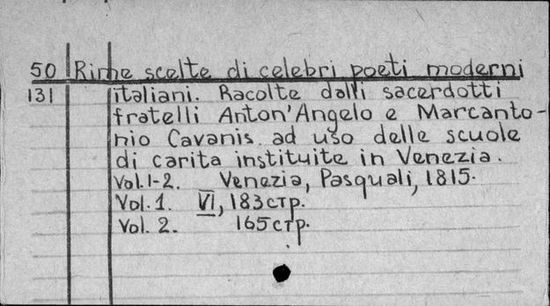 50 Rime scelte di celebri poeti moderni
131 italiani. Racolte dalli sacerdotti
fratelli Anton'Angelo e Marcanto-
nio Cavanis ad uso delle scuole
di carita instituite in Venezia.
Vol. 1-2. Venezia, Pasquali, 1815.
Vol. 1. VI, 183 стр.
Vol. 2. 165 стр.